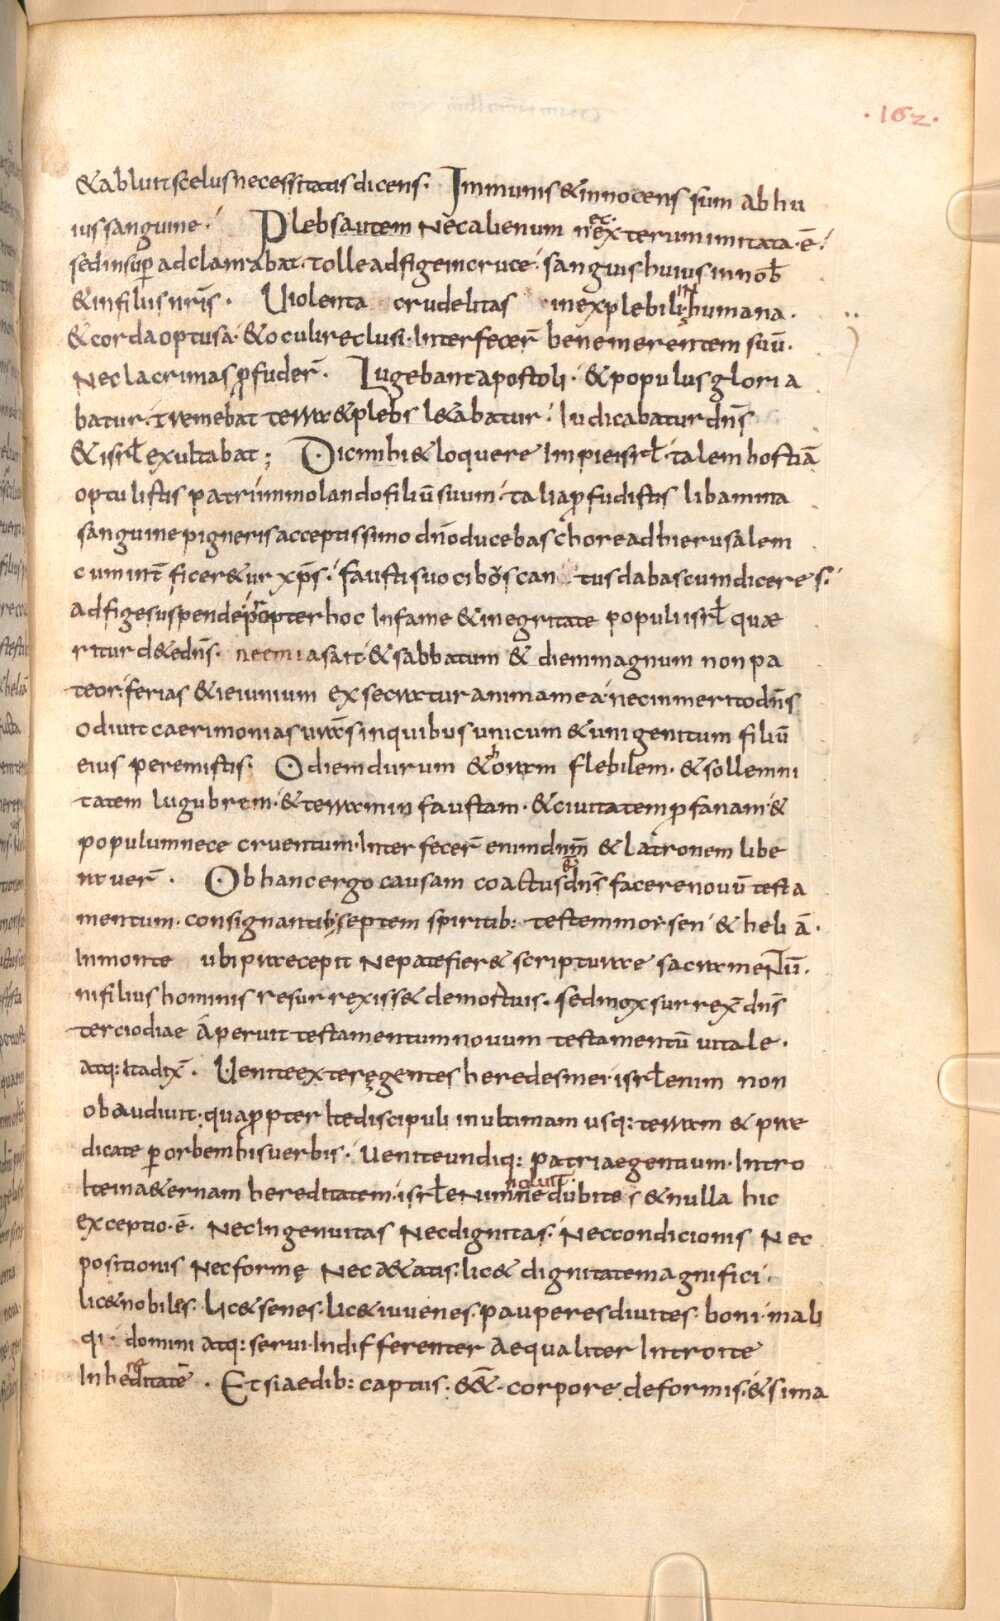 ·162·
&abluit scelus necessitatis dicens. Immunis & innocens sum ab hu
ius sanguine. Plebs autem nec alienum nec exterum imitata · ē ·
sed insup adclamabat · tolle adfige in cruce · sanguis huius in nob
& in filiis nr̄is. Uiolenta crudelitas inexplebilis inhumana.
& corda optusa · & oculi reclusi · Interfecer̄ benemerentem suū.
Nec lacrimas p fuder̄. Lugebant apostoli · & populus gloria
batur · tremebat terra & plebs l&abatur · Iudicabatur dn̄s
& isrl exultabat; Dic mihi & loquere Impie isrl · talem hostiā
optulistis patri immolando filiū suum · talia pfudistis libamina
sanguine pigneris acceptissimo dn̄o ducebas chorea d hierusalem
cum int̄ficer&ur xp̄s · faustis uocibos can tus dabas cum diceres ·
adfige suspende propter hoc Infame & inegritate populi isrl quæ
ritur d&e dn̄s. neemias ait · & sabbatum & diem magnum non pa
teor · ferias & ieiunium exsecratur anima mea · nec inmerito dn̄s
odiuit caerimonias urās in quibus unicum & unigenitum filiū
eius peremistis. O diem durum & horam flebilem · & sollemni
tatem lugubrem · & terram infaustam · & ciuitatem pfanam · &
populum nece cruentum · Interfecer̄ enim dnm̄ & latronem libe
ntuer̄. Ob hanc ergo causam coactus ē dn̄s facere nouū testa
mentum · consignantib; septem spiritib: testem moisen & heliā.
In monte ubi praecepit ne patefier& scripturae sacramentū.
ni filius hominis resurrexiss& de mortuis. sed mox surrex̄ dn̄s
tercio die aperuit testamentum nouum testamentū uitale.
atq: ita dix̄. Uenite exterę gentes heredes mei · isrl enim non
obaudiuit · quappter Ite discipuli in ultimam usq: terram & prae
dicate p orbem his uerbis. Uenite undiq: patriae gentium · Intro
Ite in a&ernam hereditatem · isrl enim noluit ne dubites & nulla hic
exceptio · ē. Nec Ingenuitas Nec dignitas · Nec condicionis Nec
positionis Nec formę Nec a&atis · lic& dignitate magnifici.
lic& nobiles · lic& senes · lic& iuuenes · pauperes diuites · boni · mali
qi · domini atq: serui · Indifferenter aequaliter Introite
In hereditatē. Et si aedib: captus · &&̄ · corpore deformis · & si ma